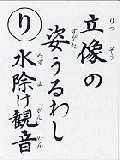 立像の
りつ ぞう
姿うるわし
すがた
り 水除け観音
みず よ かん のん